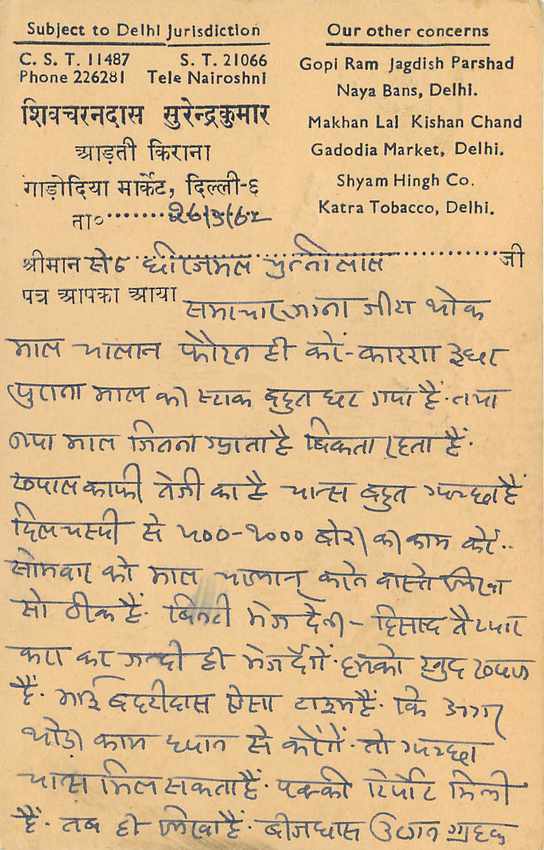 Subject to Delhi Jurisdiction
C. S. T. 11487 S. T. 21066
Phone 226281 Tele Nairoshni
शिवचरनदास सुरेन्द्रकुमार
आड़ती किराना
गाड़ोदिया मार्केट, दिल्ली-६
ता०
Our other concerns
Gopi Ram Jagdish Parshad
Naya Bans, Delhi.
Makhan Lal Kishan Chand
Gadodia Market, Delhi.
Shyam Hingh Co.
Katra Tobacco, Delhi.
श्रीमान सेठ जी
पत्र आपका आया समाचार जाना जीरा थोक
माल चालान फौरन ही करें-कारण इधर
पुराना माल का स्टाक बहुत घट गया हैं. तथा
नया माल जितना आता है बिकता रहता हैं.
ख्याल काफी तेजी का है चान्स बहुत अच्छा हैं
दिलचस्पी से ५००-१००० बोरी का काम करें..
सोमवार को माल चालान करने वास्ते लिखा
सो ठीक हैं. बिल्टी भेज देना - हिसाब तैयार
करा कर जल्दी ही भेज देंगें. हमको खुद ख्याल
हैं. भाई बदरीदास ऐसा टाइम हैं. कि अगर
थोड़ा काम ध्यान से करेंगें. तो अच्छा
चान्स मिल सकता हैं. पक्की रिपोर्ट मिली
हैं. तब ही लिखा हैं. ग्राहक